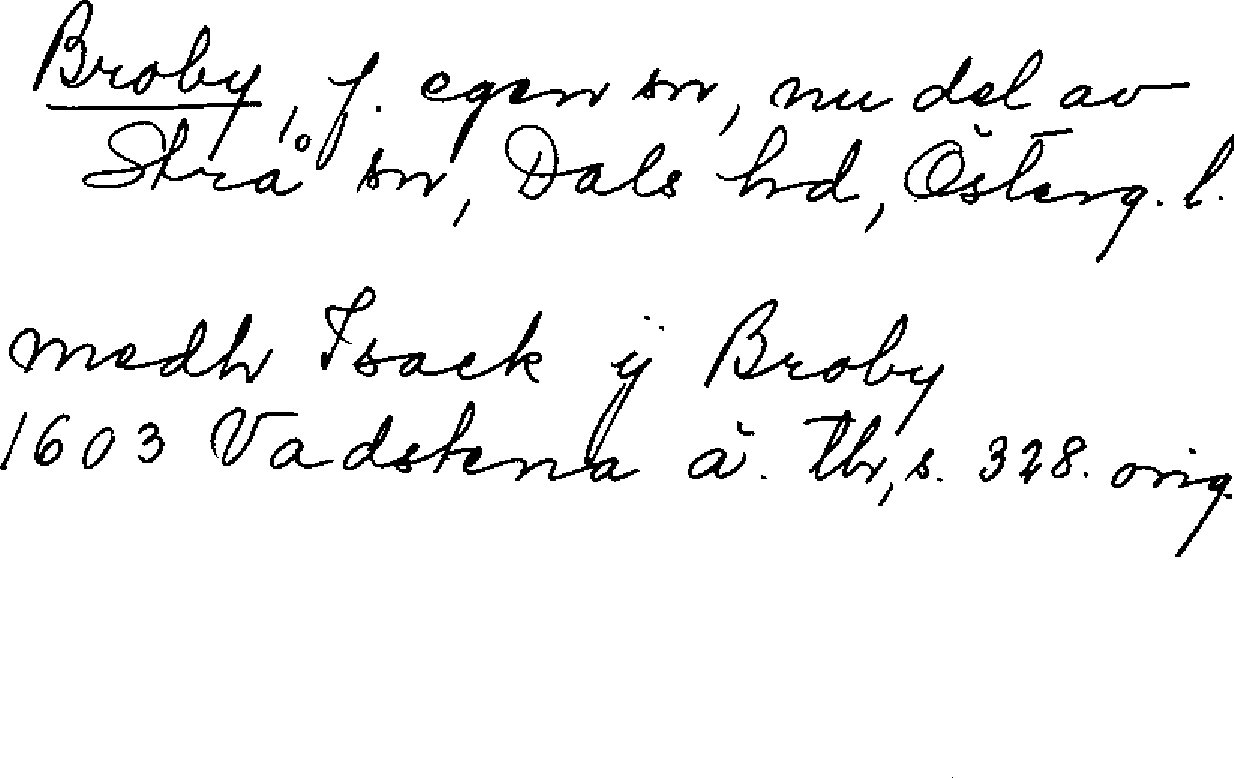 Broby, f. egen sn, nu del av
Strå sn, Dals hd, Österg. l.
medh Isack ij Broby
1603 Vadstena ä. tb, s. 328. orig.